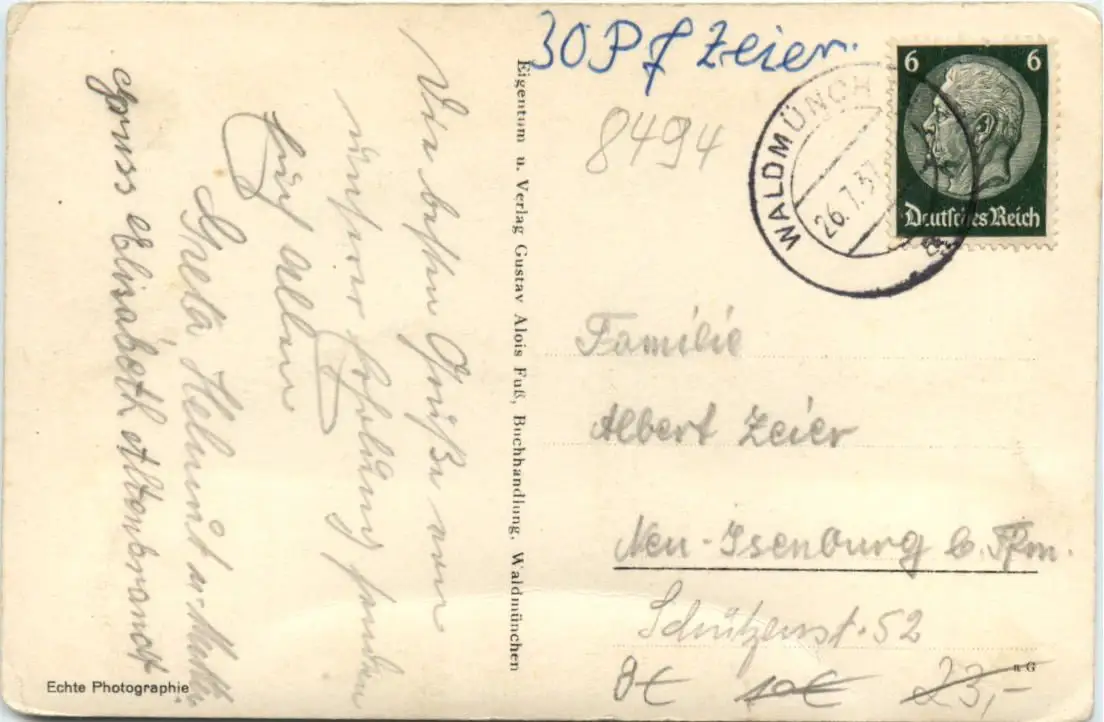 30 Pf Zeier.
8494
6 6
Deutsches Reich
WALDMÜNCH
26.7.37
Die besten Grüße von
unserer Erholung senden
Euch allen
Greta Helmut u. Mutter
Gruss Elisabeth Altenbrandt
Eigentum u. Verlag Gustav Alois Fuß, Buchhandlung, Waldmünchen
Familie
Albert Zeier
Neu-Isenburg b. Ffm.
Schützenst. 52
8€ 10€ 23,-
Echte Photographie